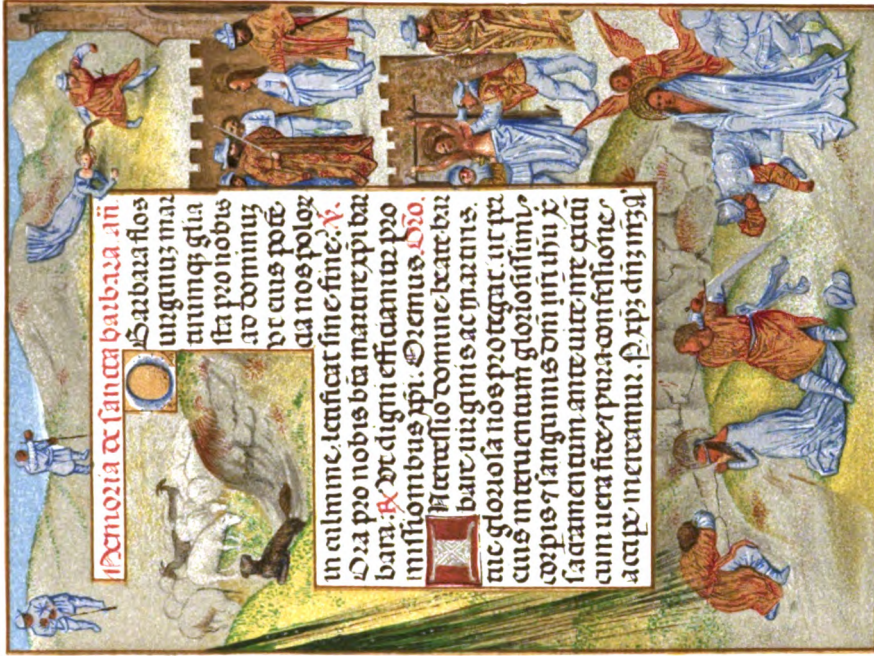 Memoria de sancta barbara. añ.
O Barbara flos
uirginuz mar
tirumqz glia
sta pro nobis
ad dominuz
vt eius potē
cia nos poloz
in culmine letificat sine fine. V̄.
Ora pro nobis btā martir xpī bar
bara. R̄ Vt digni efficiamur pro
missionibus xpī. Oremus. Orō.
Intercessio domine beate bar
bare uirginis ac martiris.
tue gloriosa nos protegat. ut per
eius interuentum gloriosissimi
corporis ⁊ sanguinis dñi nr̄i ihū xp̄i
sacramentum ante uite nr̄e exitū
cum uera fide ⁊ pura confessione
accipe mereamur. P xpz dñz nrz